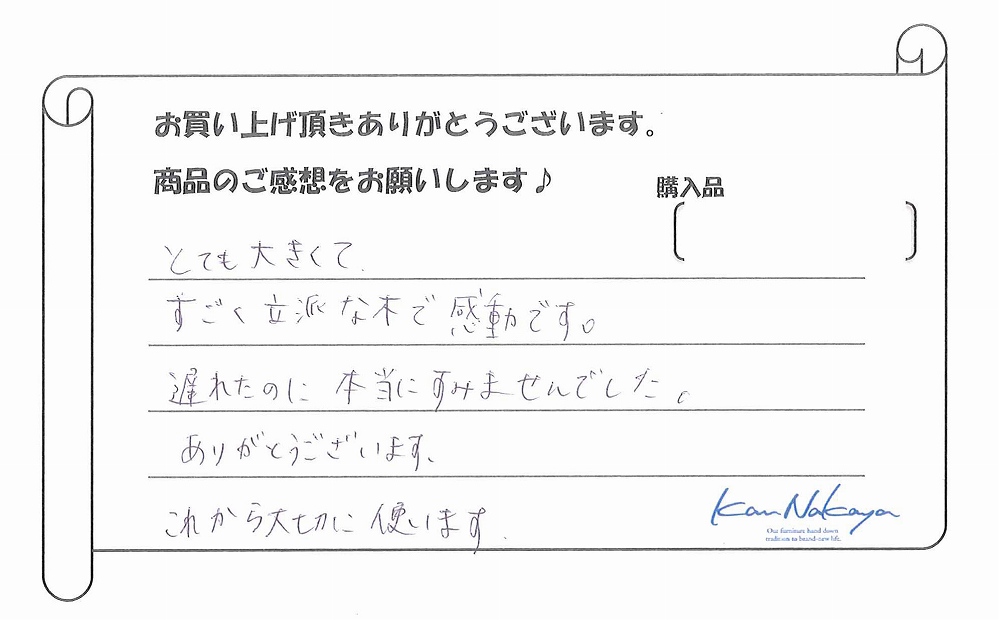 お買い上げ頂きありがとうございます。
商品のご感想をお願いします♪
購入品
とても大きくて、
すごく立派な木で感動です。
遅れたのに本当にすみませんでした。
ありがとうございます、
これから大切に使います.
Kan Nakaya
Our furniture hand down
tradition to brand-new life.